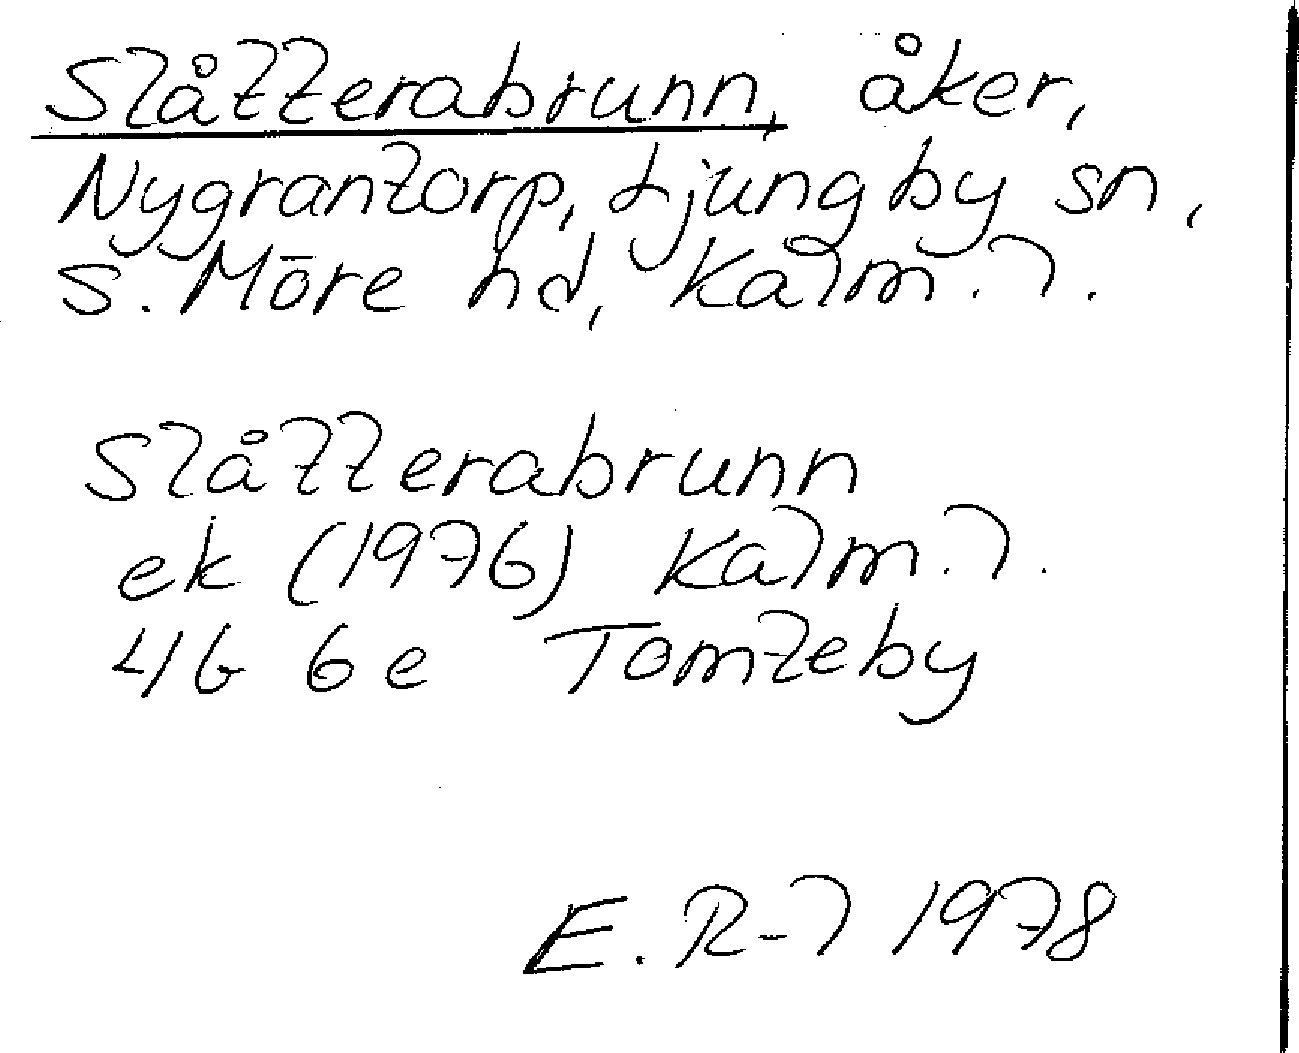 Slåtterabrunn, åker,
Nygrantorp, Ljungby sn,
S. Möre hd, Kalm. l.
Slåtterabrunn
ek (1976) Kalm. l.
4G 6e Tomteby
E. R-l 1978